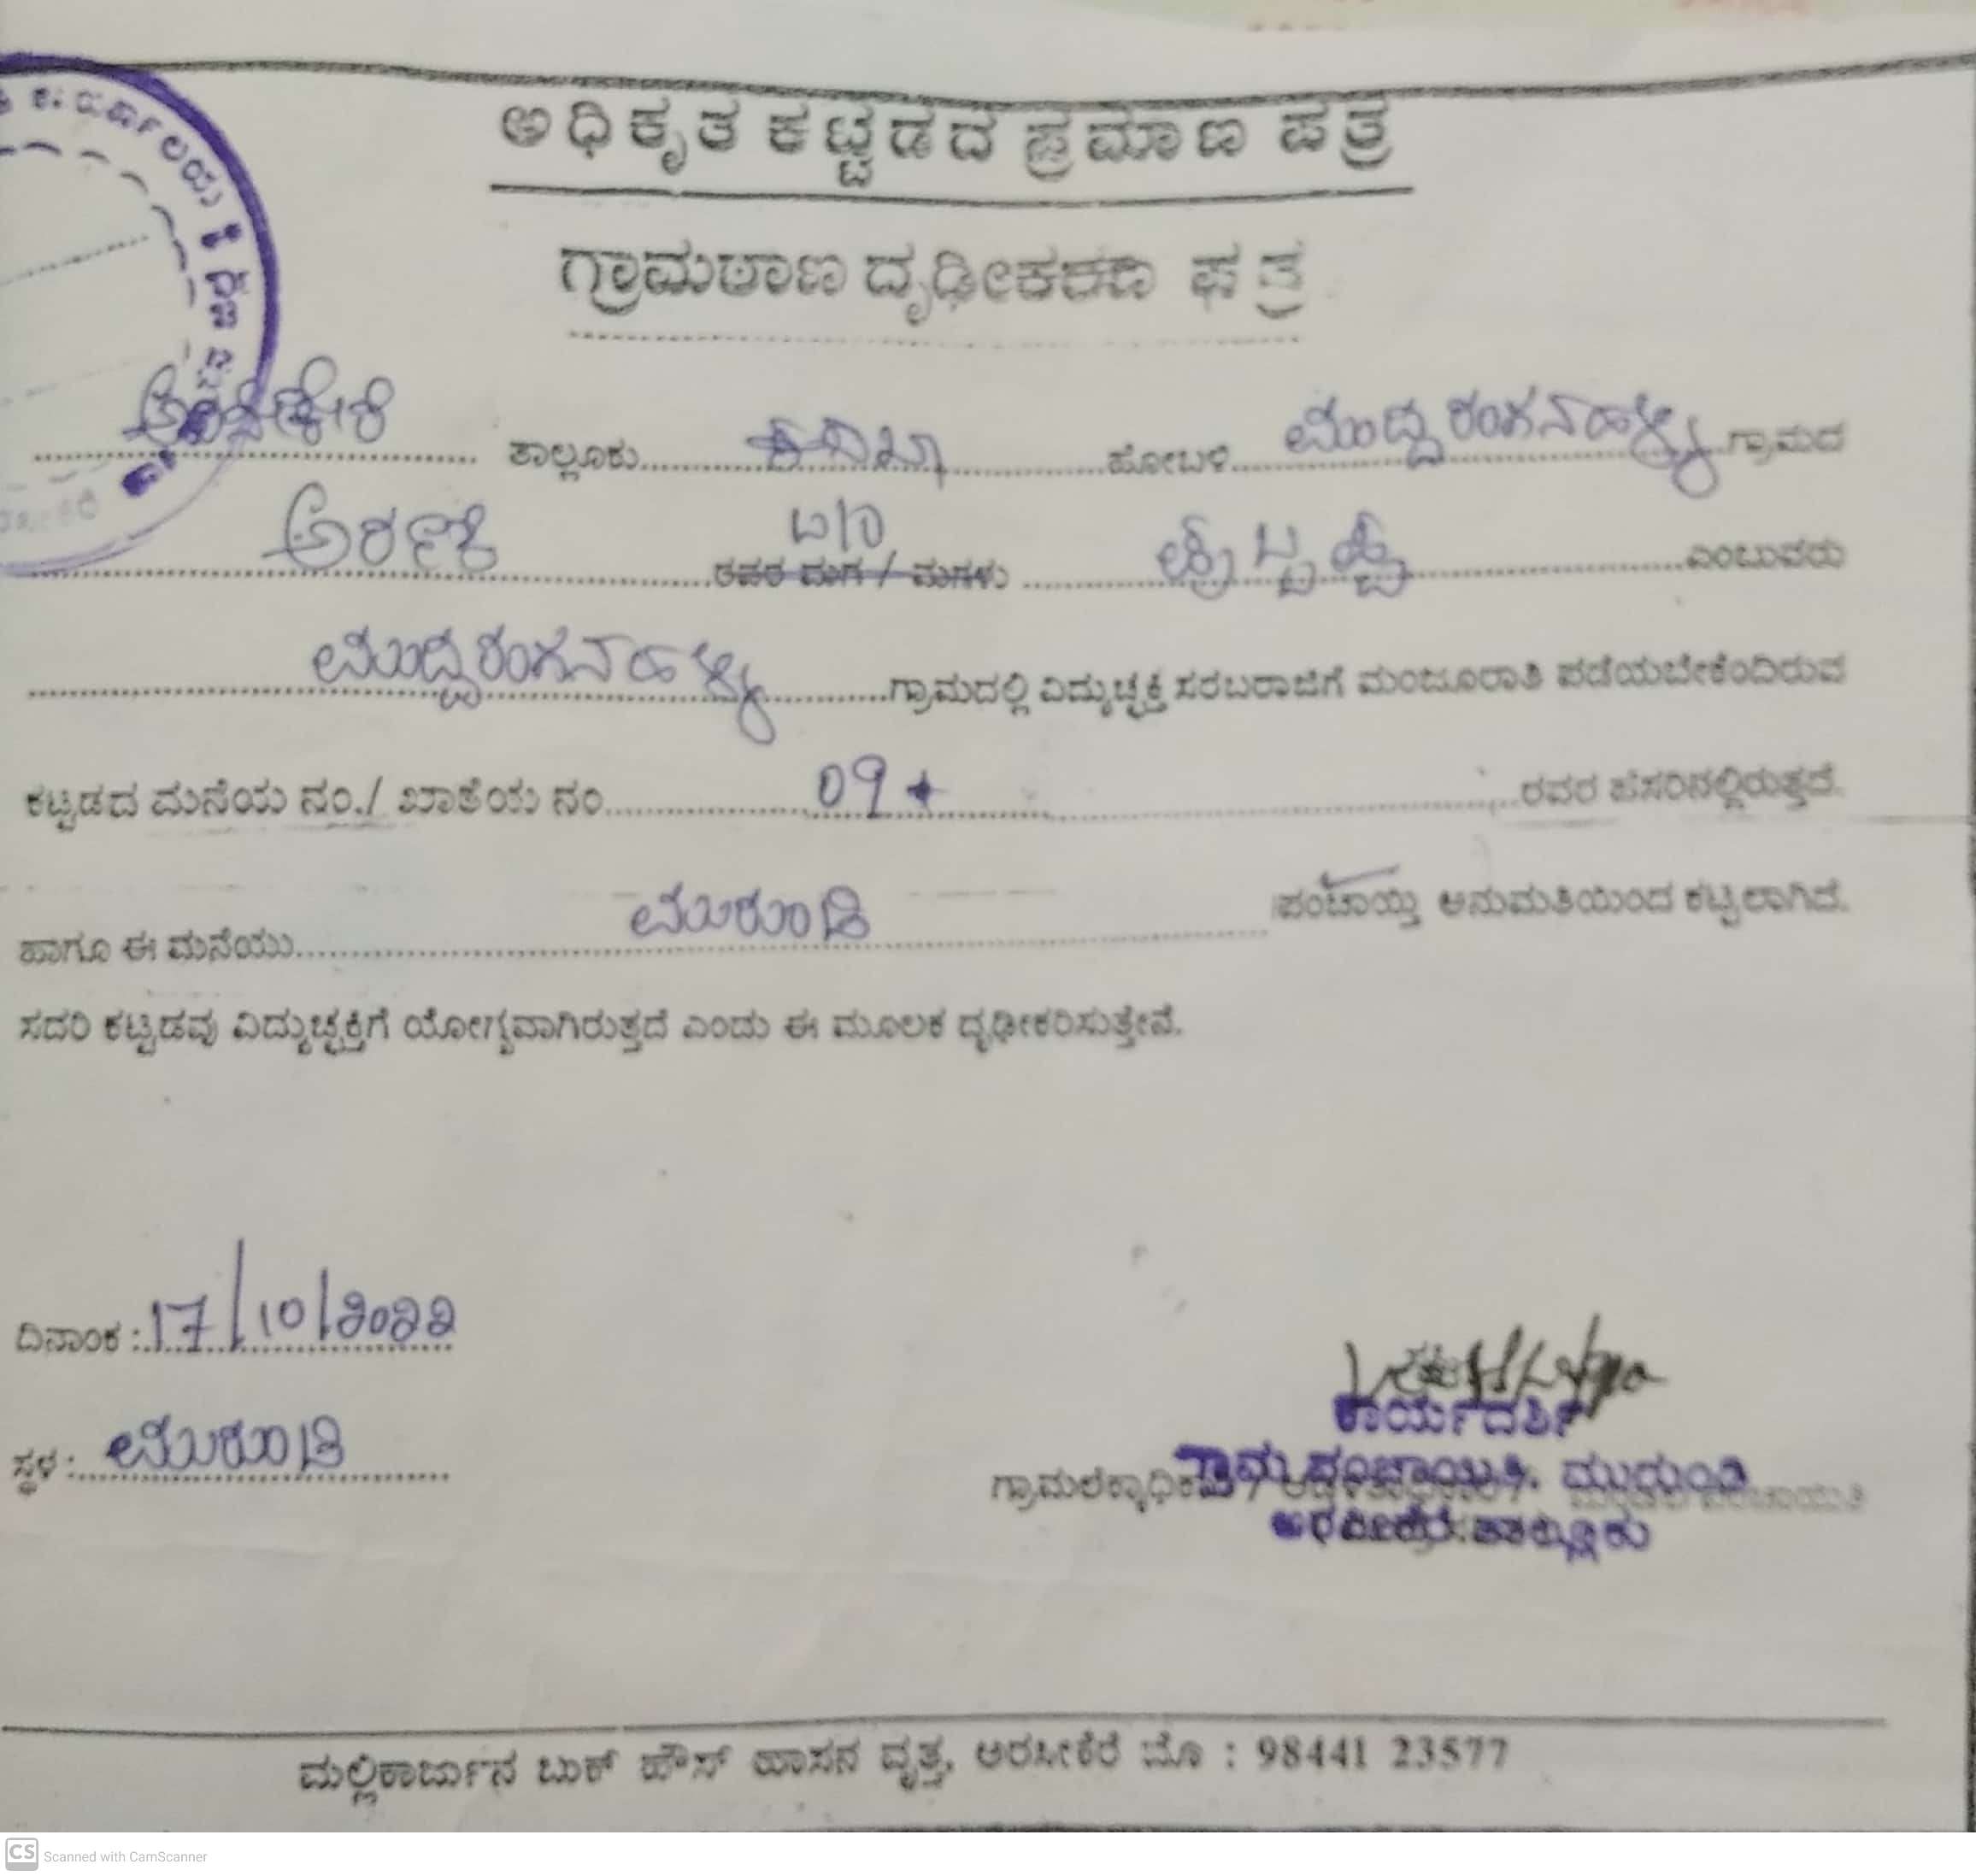 ಅಧಿಕೃತ ಕಟ್ಟಡದ ಪ್ರಮಾಣ ಪತ್ರ
ಗ್ರಾಮಠಾಣ ದೃಢೀಕರಣ ಪತ್ರ
ಅರಸೀಕೆರೆ ತಾಲ್ಲೂಕು ಕಸಬಾ ಹೋಬಳಿ ಮುದ್ದರಂಗನಹಳ್ಳಿ ಗ್ರಾಮದ
W/O
ರವರ ಮಗ / ಮಗಳು ಎಂಬುವರು
ಮುದ್ದರಂಗನಹಳ್ಳಿ ಗ್ರಾಮದಲ್ಲಿ ವಿದ್ಯುಚ್ಛಕ್ತಿ ಸರಬರಾಜಿಗೆ ಮಂಜೂರಾತಿ ಪಡೆಯಬೇಕೆಂದಿರುವ
ಕಟ್ಟಡದ ಮನೆಯ ನಂ./ ಖಾತೆಯ ನಂ 09 ರವರ ಹೆಸರಿನಲ್ಲಿರುತ್ತದೆ.
ಹಾಗೂ ಈ ಮನೆಯು ಮುರುಂಡಿ ಪಂಚಾಯ್ತಿ ಅನುಮತಿಯಿಂದ ಕಟ್ಟಲಾಗಿದೆ.
ಸದರಿ ಕಟ್ಟಡವು ವಿದ್ಯುಚ್ಛಕ್ತಿಗೆ ಯೋಗ್ಯವಾಗಿರುತ್ತದೆ ಎಂದು ಈ ಮೂಲಕ ದೃಢೀಕರಿಸುತ್ತೇನೆ.
ದಿನಾಂಕ : 17/10/2022
ಕಾರ್ಯದರ್ಶಿ
ಸ್ಥಳ : ಮುರುಂಡಿ
ಗ್ರಾಮ ಪಂಚಾಯಿತಿ. ಮುರುಂಡಿ
ಅರಸೀಕೆರೆ ತಾಲ್ಲೂಕು
ಮಲ್ಲಿಕಾರ್ಜುನ ಬುಕ್ ಹೌಸ್ ಹಾಸನ ವೃತ್ತ, ಅರಸೀಕೆರೆ ಮೊ : 98441 23577
CS Scanned with CamScanner